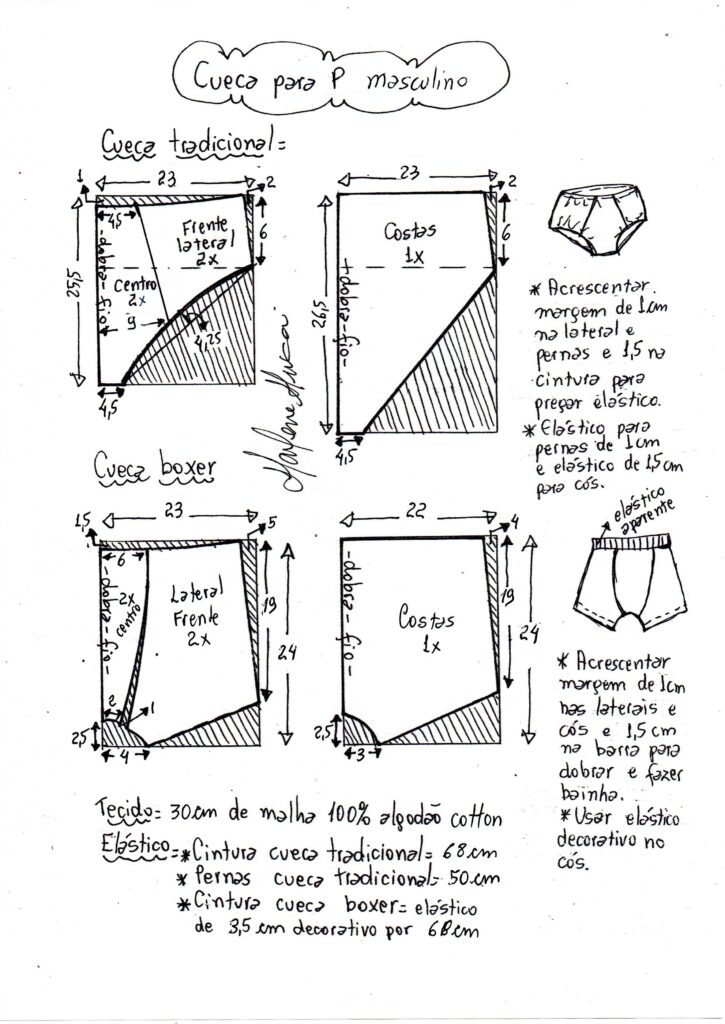 Cueca para P masculino
Cueca tradicional=
1
23
2
4,5
Frente
lateral
2x
6
25,5
-dobra-fio-
Centro
2x
9
4,25
4,5
23
2
Costas
1x
6
26,5
+dobra-fio-
4,5
* Acrescentar
margem de 1cm
na lateral e
pernas e 1,5 na
cintura para
pregar elástico.
* Elástico para
pernas de 1cm
e elástico de 1,5cm
para cós.
Cueca boxer
1,5
23
5
6
-dobra-fio-
2x
centro
Lateral
Frente
2x
19
24
2
1
2,5
4
22
4
-dobra-fio-
Costas
1x
19
24
2,5
3
elástico
aparente
* Acrescentar
margem de 1cm
nas laterais e
cós e 1,5cm
na barra para
dobrar e fazer
bainha.
* Usar elástico
decorativo no
cós.
Tecido= 30cm de malha 100% algodão cotton
Elástico=*Cintura cueca tradicional= 68cm
* Pernas cueca tradicional= 50cm
*Cintura cueca boxer= elástico
de 3,5cm decorativo por 68cm